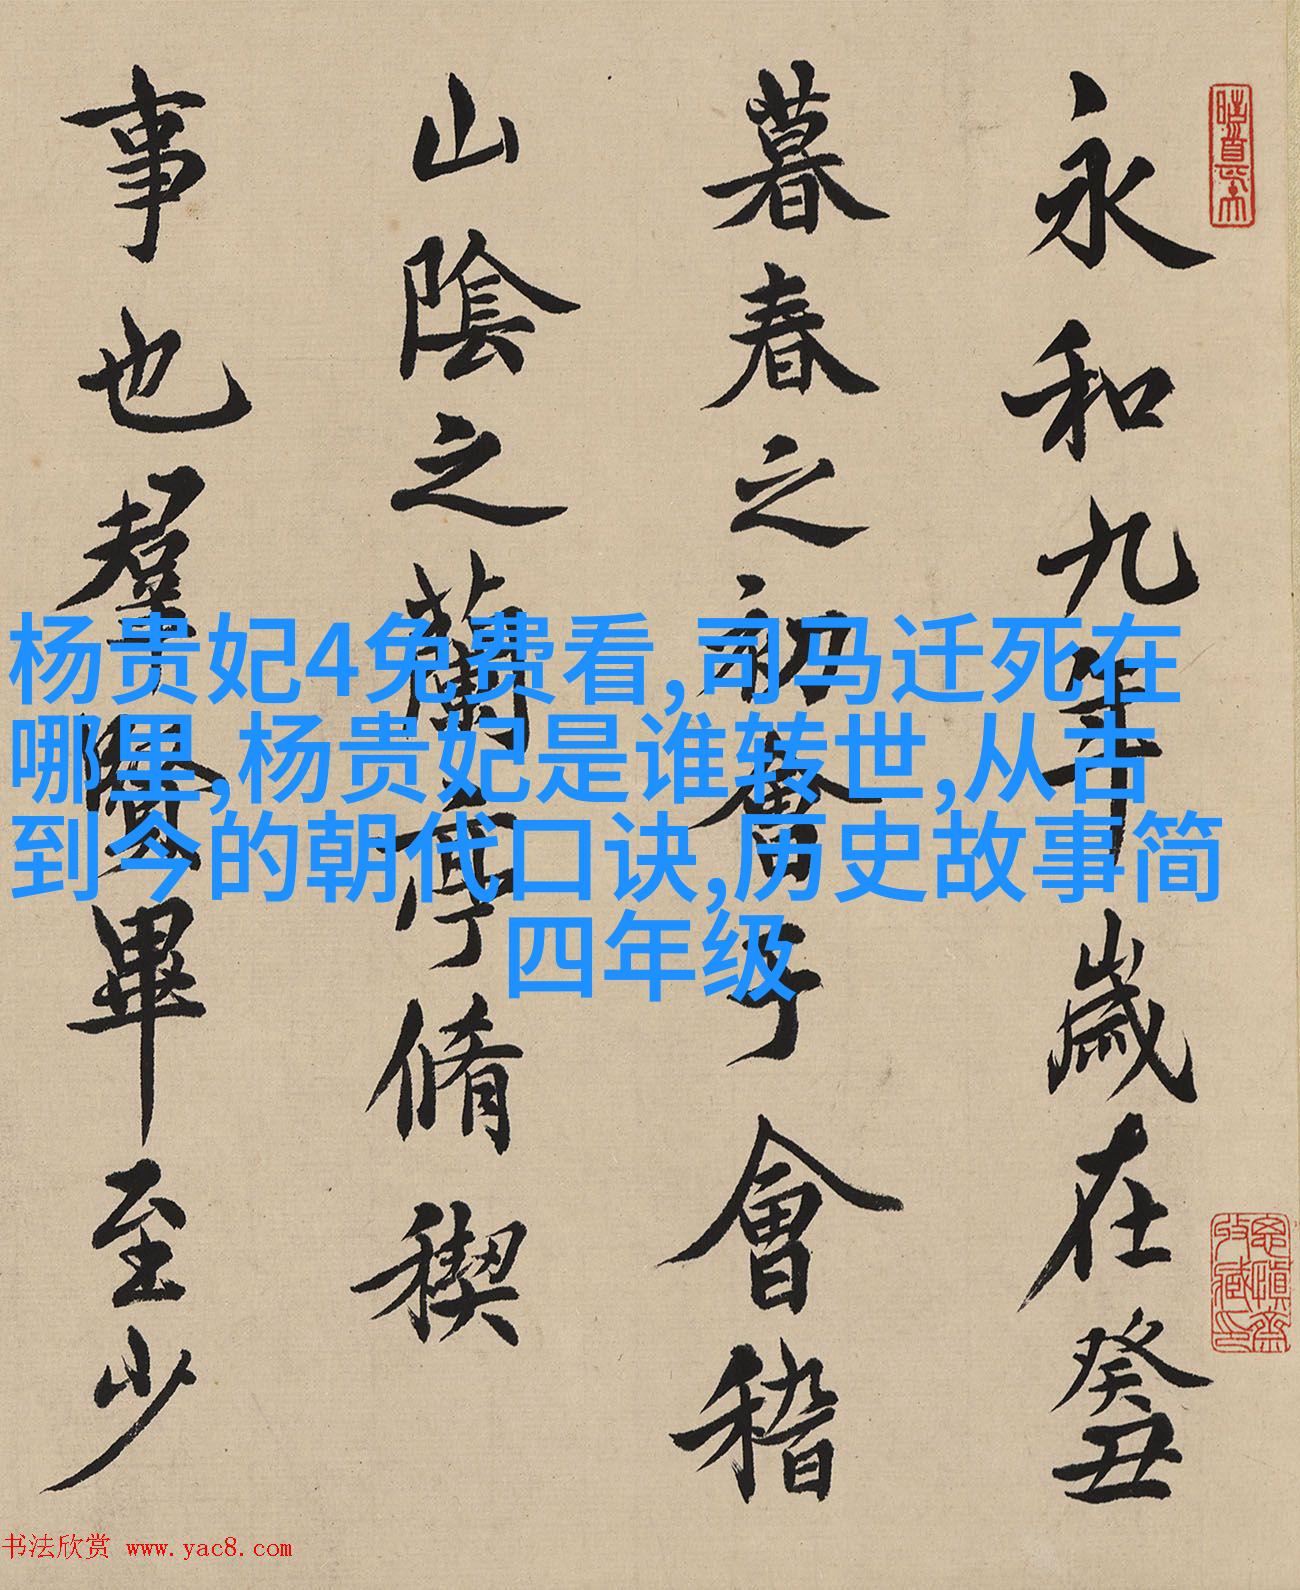 永和九年歲在癸丑
暮春之初會于會稽
山陰之蘭亭脩稧
事也羣賢畢至少
杨贵妃4免费看,司马迁死在
哪里,杨贵妃是谁转世,从古
到今的朝代口诀,历史故事简
四年级
书法欣赏 www.yac8.com